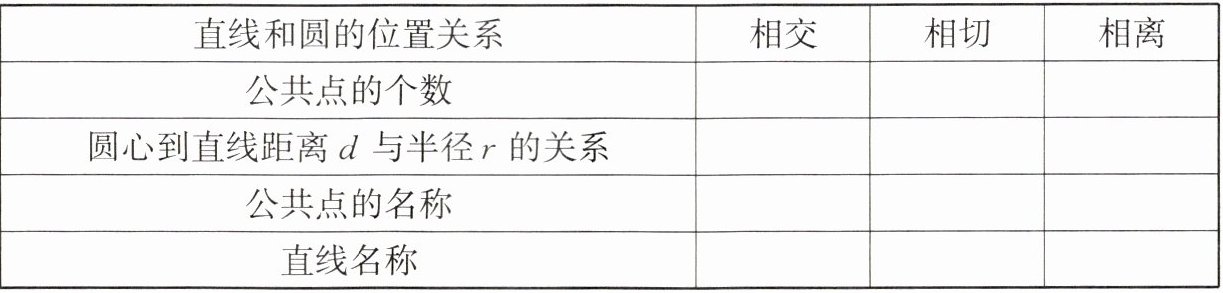 直线和圆的位置关系 相交 相切 相离
公共点的个数
圆心到直线距离 d 与半径 r 的关系
公共点的名称
直线名称